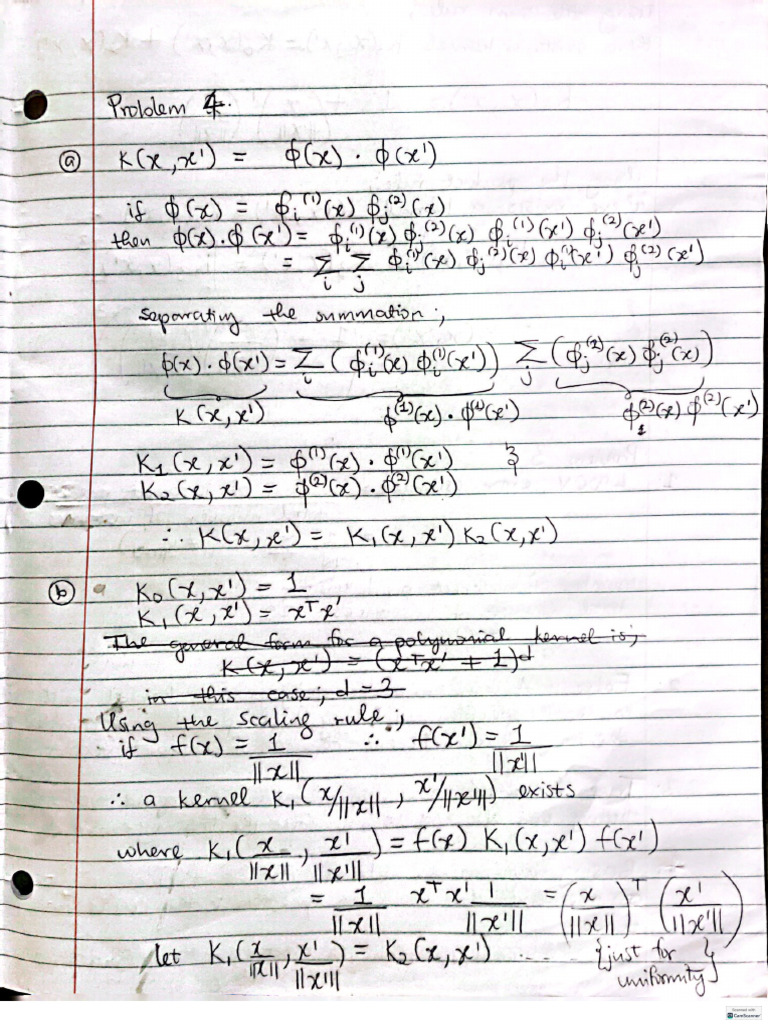 Problem 4.
(a) K(x,x') = ϕ(x) · ϕ(x')
if ϕ(x) = ϕᵢ⁽¹⁾(x) ϕⱼ⁽²⁾(x)
then ϕ(x).ϕ(x') = ϕᵢ⁽¹⁾(x) ϕⱼ⁽²⁾(x) ϕᵢ⁽¹⁾(x') ϕⱼ⁽²⁾(x')
= Σᵢ Σⱼ ϕᵢ⁽¹⁾(x) ϕⱼ⁽²⁾(x) ϕᵢ⁽¹⁾(x') ϕⱼ⁽²⁾(x')
Separating the summation;
ϕ(x) · ϕ(x') = Σᵢ (ϕᵢ⁽¹⁾(x) ϕᵢ⁽¹⁾(x')) Σⱼ (ϕⱼ⁽²⁾(x) ϕⱼ⁽²⁾(x))
K(x,x') ϕ⁽¹⁾(x) · ϕ⁽¹⁾(x') ϕ⁽²⁾(x) ϕ⁽²⁾(x')
K₁(x,x') = ϕ⁽¹⁾(x) · ϕ⁽¹⁾(x') &
K₂(x,x') = ϕ⁽²⁾(x) · ϕ⁽²⁾(x')
∴ K(x,x') = K₁(x,x') K₂(x,x')
(b) K₀(x,x') = 1,
K₁(x,x') = xᵀx
The general form for a polynomial kernel is;
K(x,x') = (xᵀx' + 1)ᵈ
in this case; d = 3
Using the scaling rule;
if f(x) = 1/||x|| ∴ f(x') = 1/||x'||
∴ a kernel K₁(x/||x||, x'/||x'||) exists
where K₁(x/||x||, x'/||x'||) = f(x) K₁(x,x') f(x')
= 1/||x|| xᵀx' 1/||x'|| = (x/||x||)ᵀ (x'/||x'||)
let K₁(x/||x||, x'/||x'||) = K₂(x,x') ... {just for uniformity}
Scanned with
CamScanner